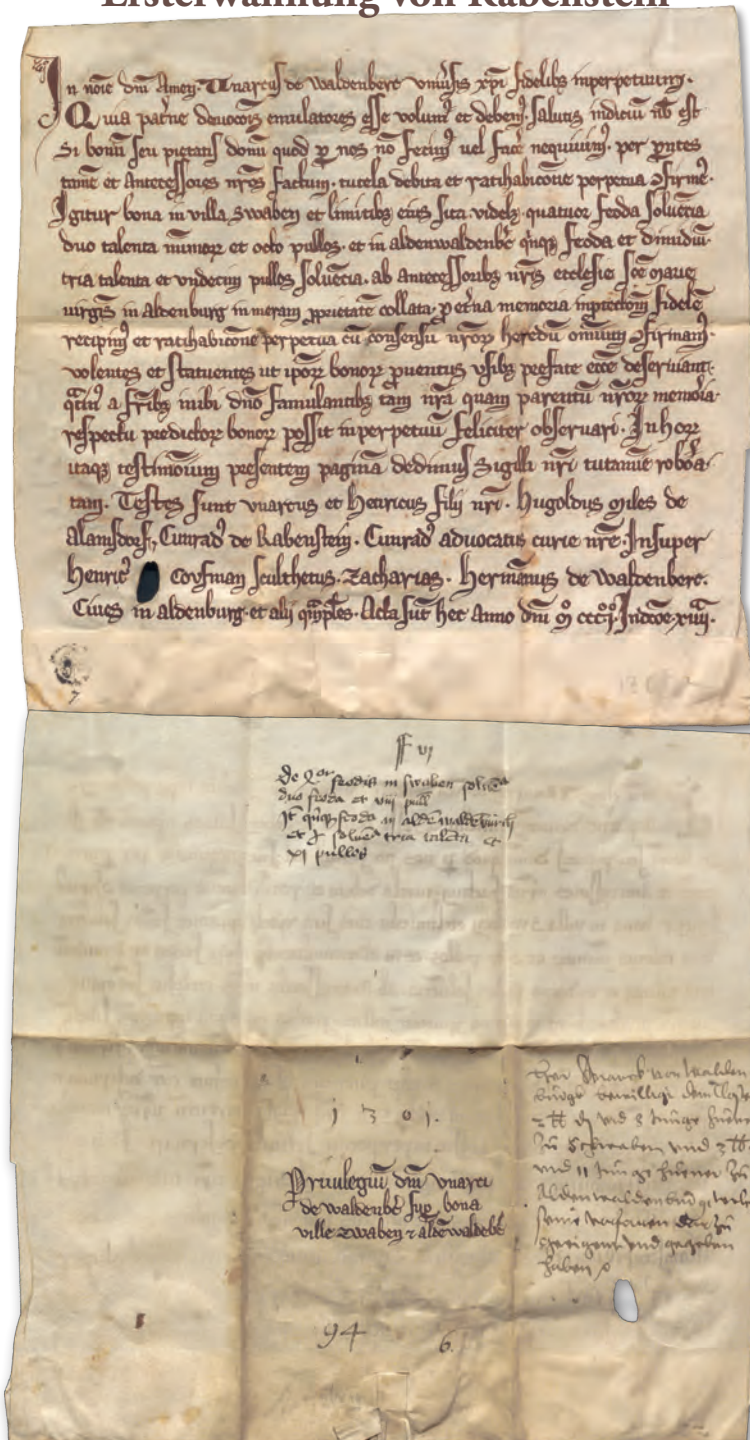 Ersterwähnung von Rabenstein
In noīe dn̄i Amen. Unarcus de Waldenberc univ̄sis xp̄i fidelib9 inperpetuum.
Quia pat'ne devocoīs emulatores esse volum9 et debem9. salutis indiciū nob̄ est
Si bonū seu pietatis donū quod p nos nō fecim9 vel fac'e nequivim9. per
tamē et Antecessores nr̄os factum. tutela debita et ratihabicōne perpetua
Igitur bona in villa Swaben et limitib9 eius sita videlz quatuor feoda solvēcia
duo talenta nūmorꝝ et octo pullos. et in aldenwaldenbc' quīqꝫ feoda et dimidiū.
tria talenta et undecim pullos solvēcia. ab antecessorib9 nr̄is ecclesie sc̄e marie
virgis in Aldenburg in meram proprietatē collata. p et'na memoria fidelē
recipim9 et ratihabicōne perpetua cū consensu nr̄orꝝ heredū omniū
volentes et statuentes ut ip̄orꝝ bonorꝝ pventus usib9 prefate ecc̄e deserviant.
a fr̄ib9 inibi dn̄o famulantib9 tam nr̄a quam parentū nr̄orꝝ memoria
respectu predictorꝝ bonorꝝ possit inperpetuū feliciter observari. In horꝝ
itaqꝫ testimoniū presentem paginā dedimus Sigilli nr̄i tutamīe robora-
tam. Testes sunt unarcus et Henricus filii nr̄i. Hugoldus miles de
Alamsdorf, Cunrad9 de Rabenstein. Cunrad9 advocatus curie nr̄e. Insuper
Henric9 Coufman sculthetus. Zacharias. Hermānus de Waldenberc.
Cives in aldenburg. et alii q̄mples. Acta sūt hec Anno dn̄i mͦ cccͦ jͦ. Indcōe xiiii.
7
vj
De qor feodis in swaben
duo feoda et viii pull
It quīqꝫ feoda in aldēwaldēburch
et solvēt tria talēta et
xj pullos
1 3 0 1.
Privilegiū dn̄i unarci
de waldenbc' sup bona
ville zwaben et aldēwaldebc'
von Walden
bewilligt dem
und 8 Junge
Zu Schwaben und 3
und 11 Junge Huener Zu
Aldenwaldenburg
seine vorfaren
und gegeben
haben
94
6.